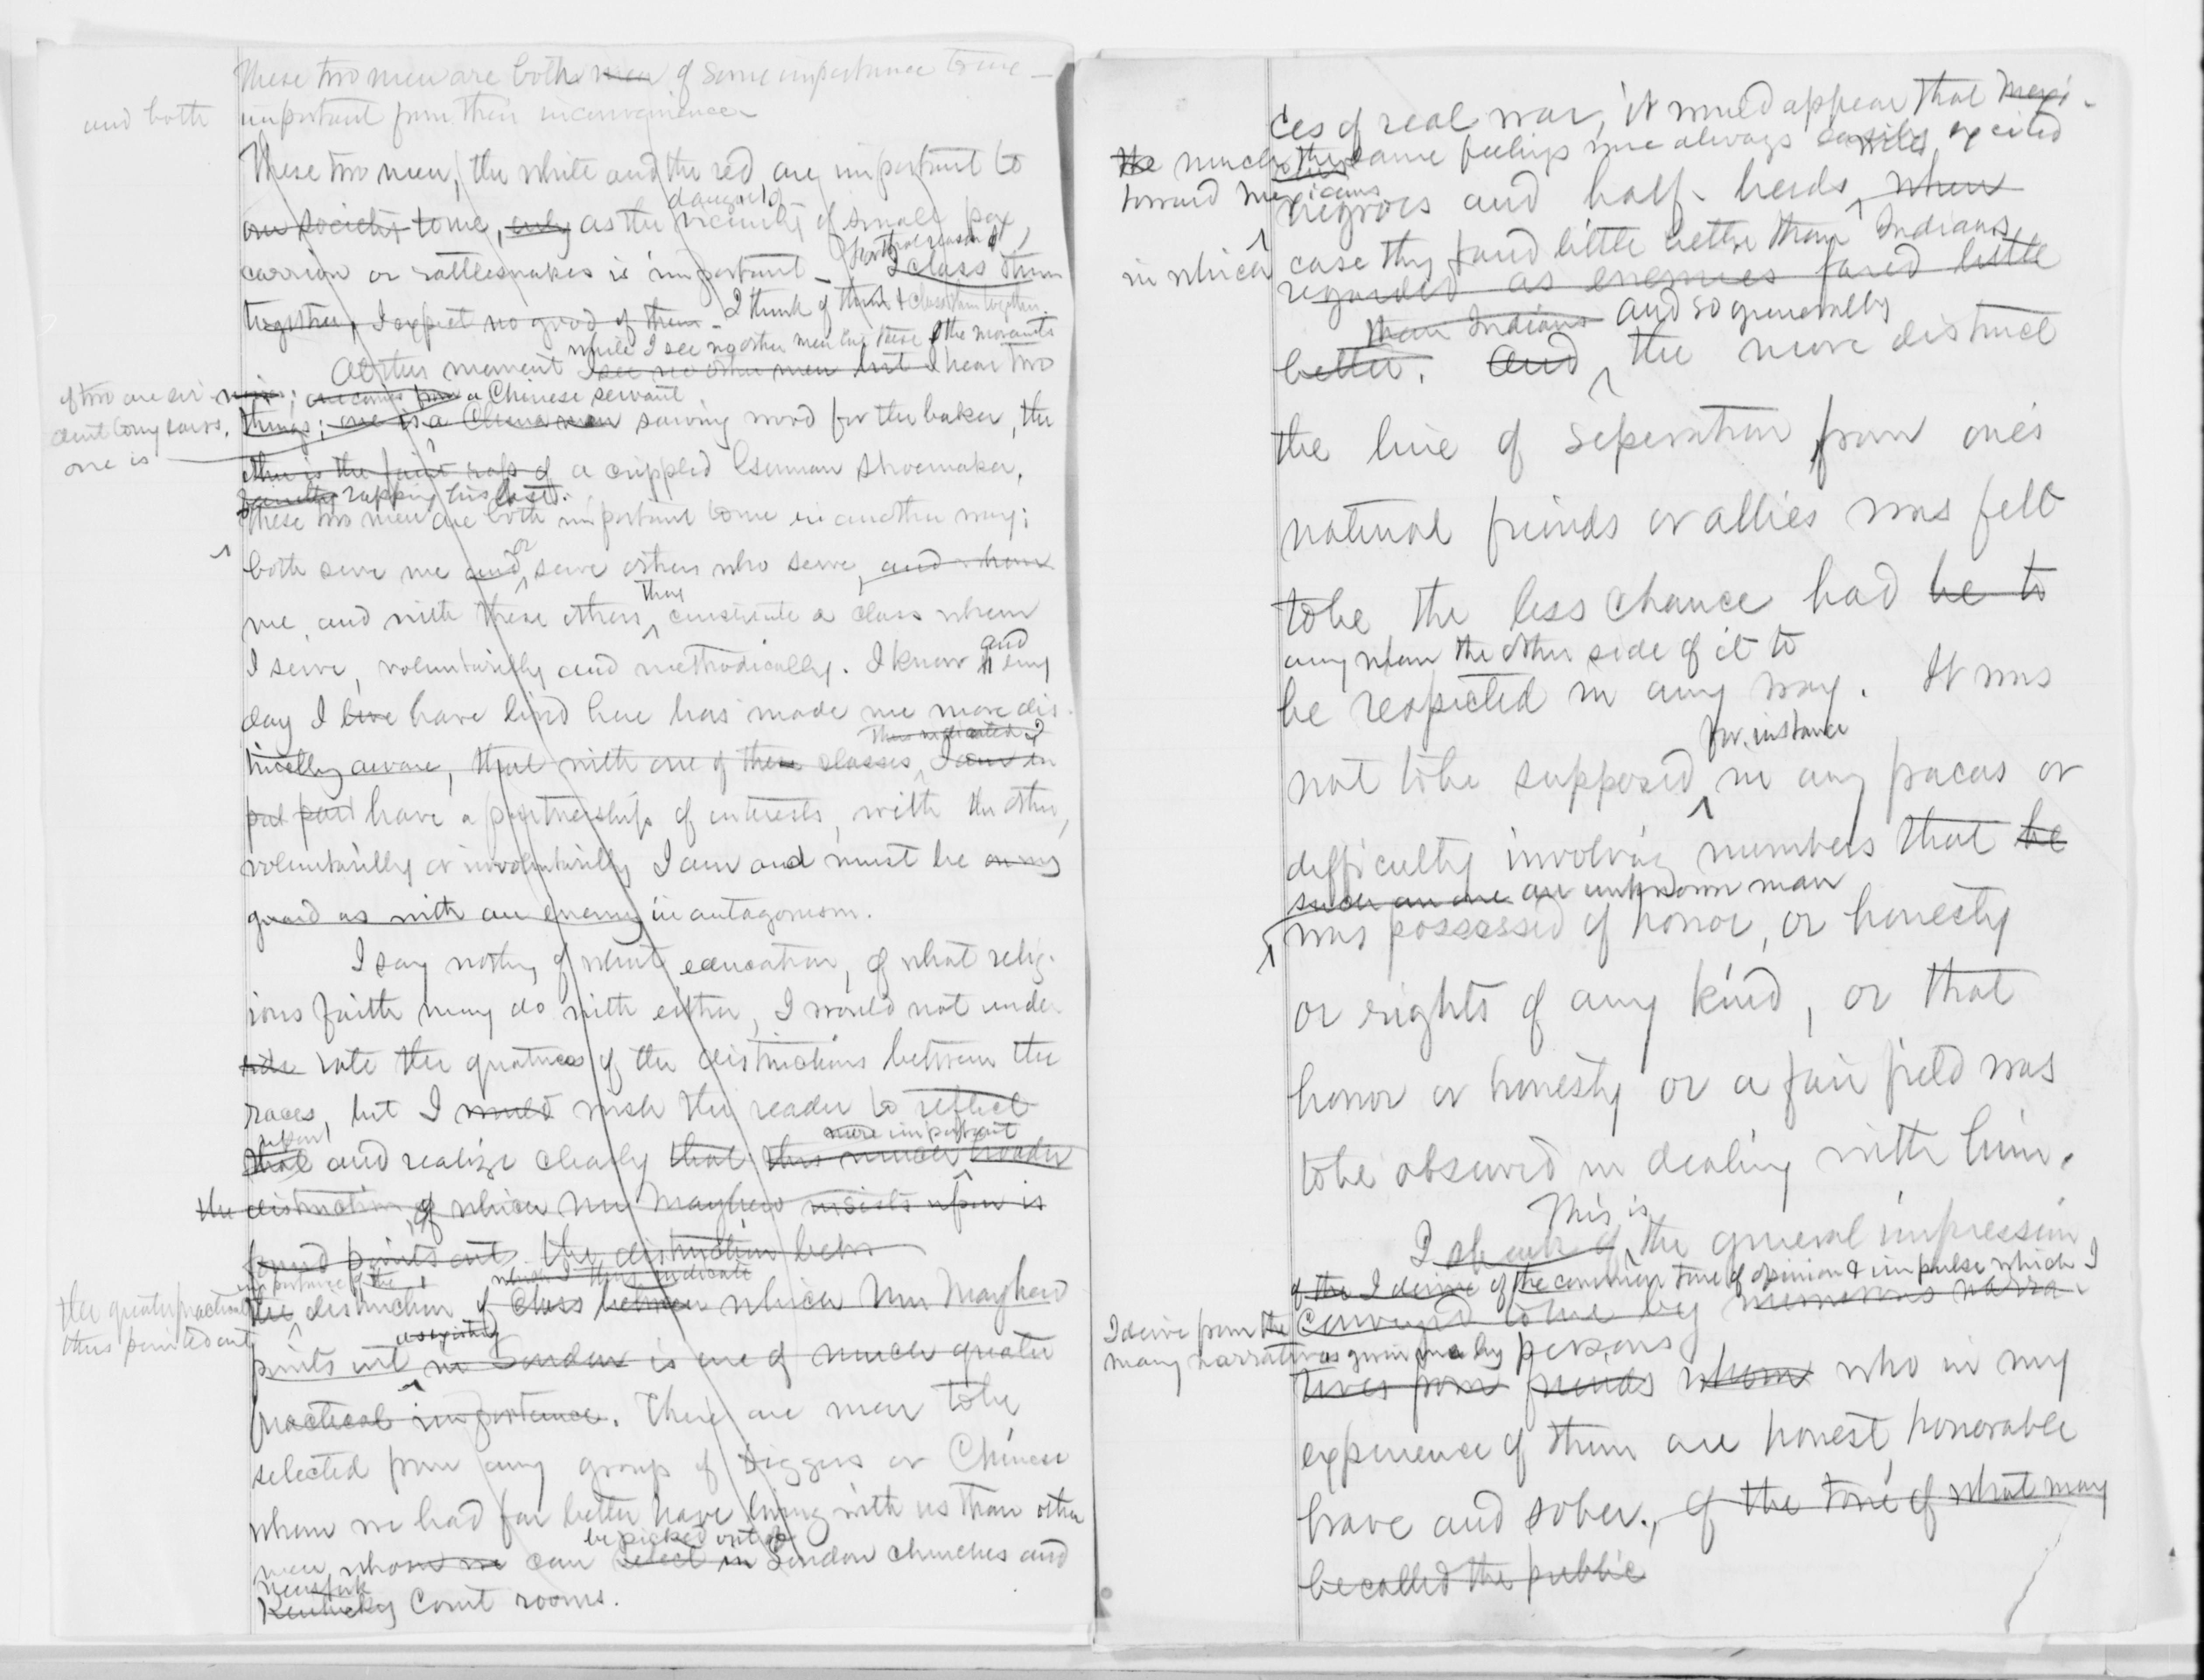 These two men are both men of some importance to me —
and both important from their inconvenience
These two men, the white and the red are important to
our society to me, only as the vicinity of small pox,
dangerous
carrion or rattlesnakes is important — I class them
for that reason
together, I expect no good of them — I think of them & class them together.
while I see no other men but these & the movements
At this moment I see no other men but I hear two
of two are evi-
dent to my ears,
one is
a Chinese servant
things; one is a China man sawing wood for the baker, the
other is the faint raps of a crippled German shoemaker,
rapping his last.
These two men are both important to me in another way;
both serve me and or serve others who serve, and whom
me, and with these others they constitute a class whom
I serve, voluntarily and methodically. I know and every
day I live have lived here has made me more dis-
tinctly aware, that with one of these classes, I am in
Thus indicated I
put part have a partnership of interests, with the other,
voluntarily or involuntarily I am and must be on my
guard as with an enemy in antagonism.
I say nothing of what education, of what relig-
ious faith may do with either, I would not under
rate the greatness of the distinctions between the
races, but I would wish the reader to reflect
upon
that and realize clearly that this much broader
more important
the distinction of which Mr Mayhew insists upon is
found points out the distinction betw
the greater practical
importance of the
thus pointed out
which I thus indicate
the distinction of class between which Mr Mayhew
points out as existing in London is one of much greater
practical importance. There are men to be
selected from any group of Diggers or Chinese
whom we had far better have living with us than other
men whom we can select in London churches and
be picked out of
New York
Kentucky Court rooms.
ces of real war, it would appear that Mexi-
the much the same feelings were always easily excited
toward Mexicans
negroes and half-breeds, when
in which case they fared little better than Indians,
regarded as enemies fared little
than Indians and so generally
better. And the more distinct
the line of seperation from one's
natural friends or allies was felt
to be the less chance had be to
any upon the other side of it to
be respected in any way. It was
for instance
not to be supposed in any fracas or
difficulty involving numbers that he
such an one an unknown man
was possessed of honor, or honesty
or rights of any kind, or that
honor or honesty or a fair field was
to be observed in dealing with him.
This is
I speak of the general impression
of the I derive of the common tone of opinion & impulse which I
conveyed to me by numerous narra-
I derive from the
many narratives given me by persons
tives from friends whom who in my
experience of them are honest, honorable
brave and sober., of the tone of what may
be called the public